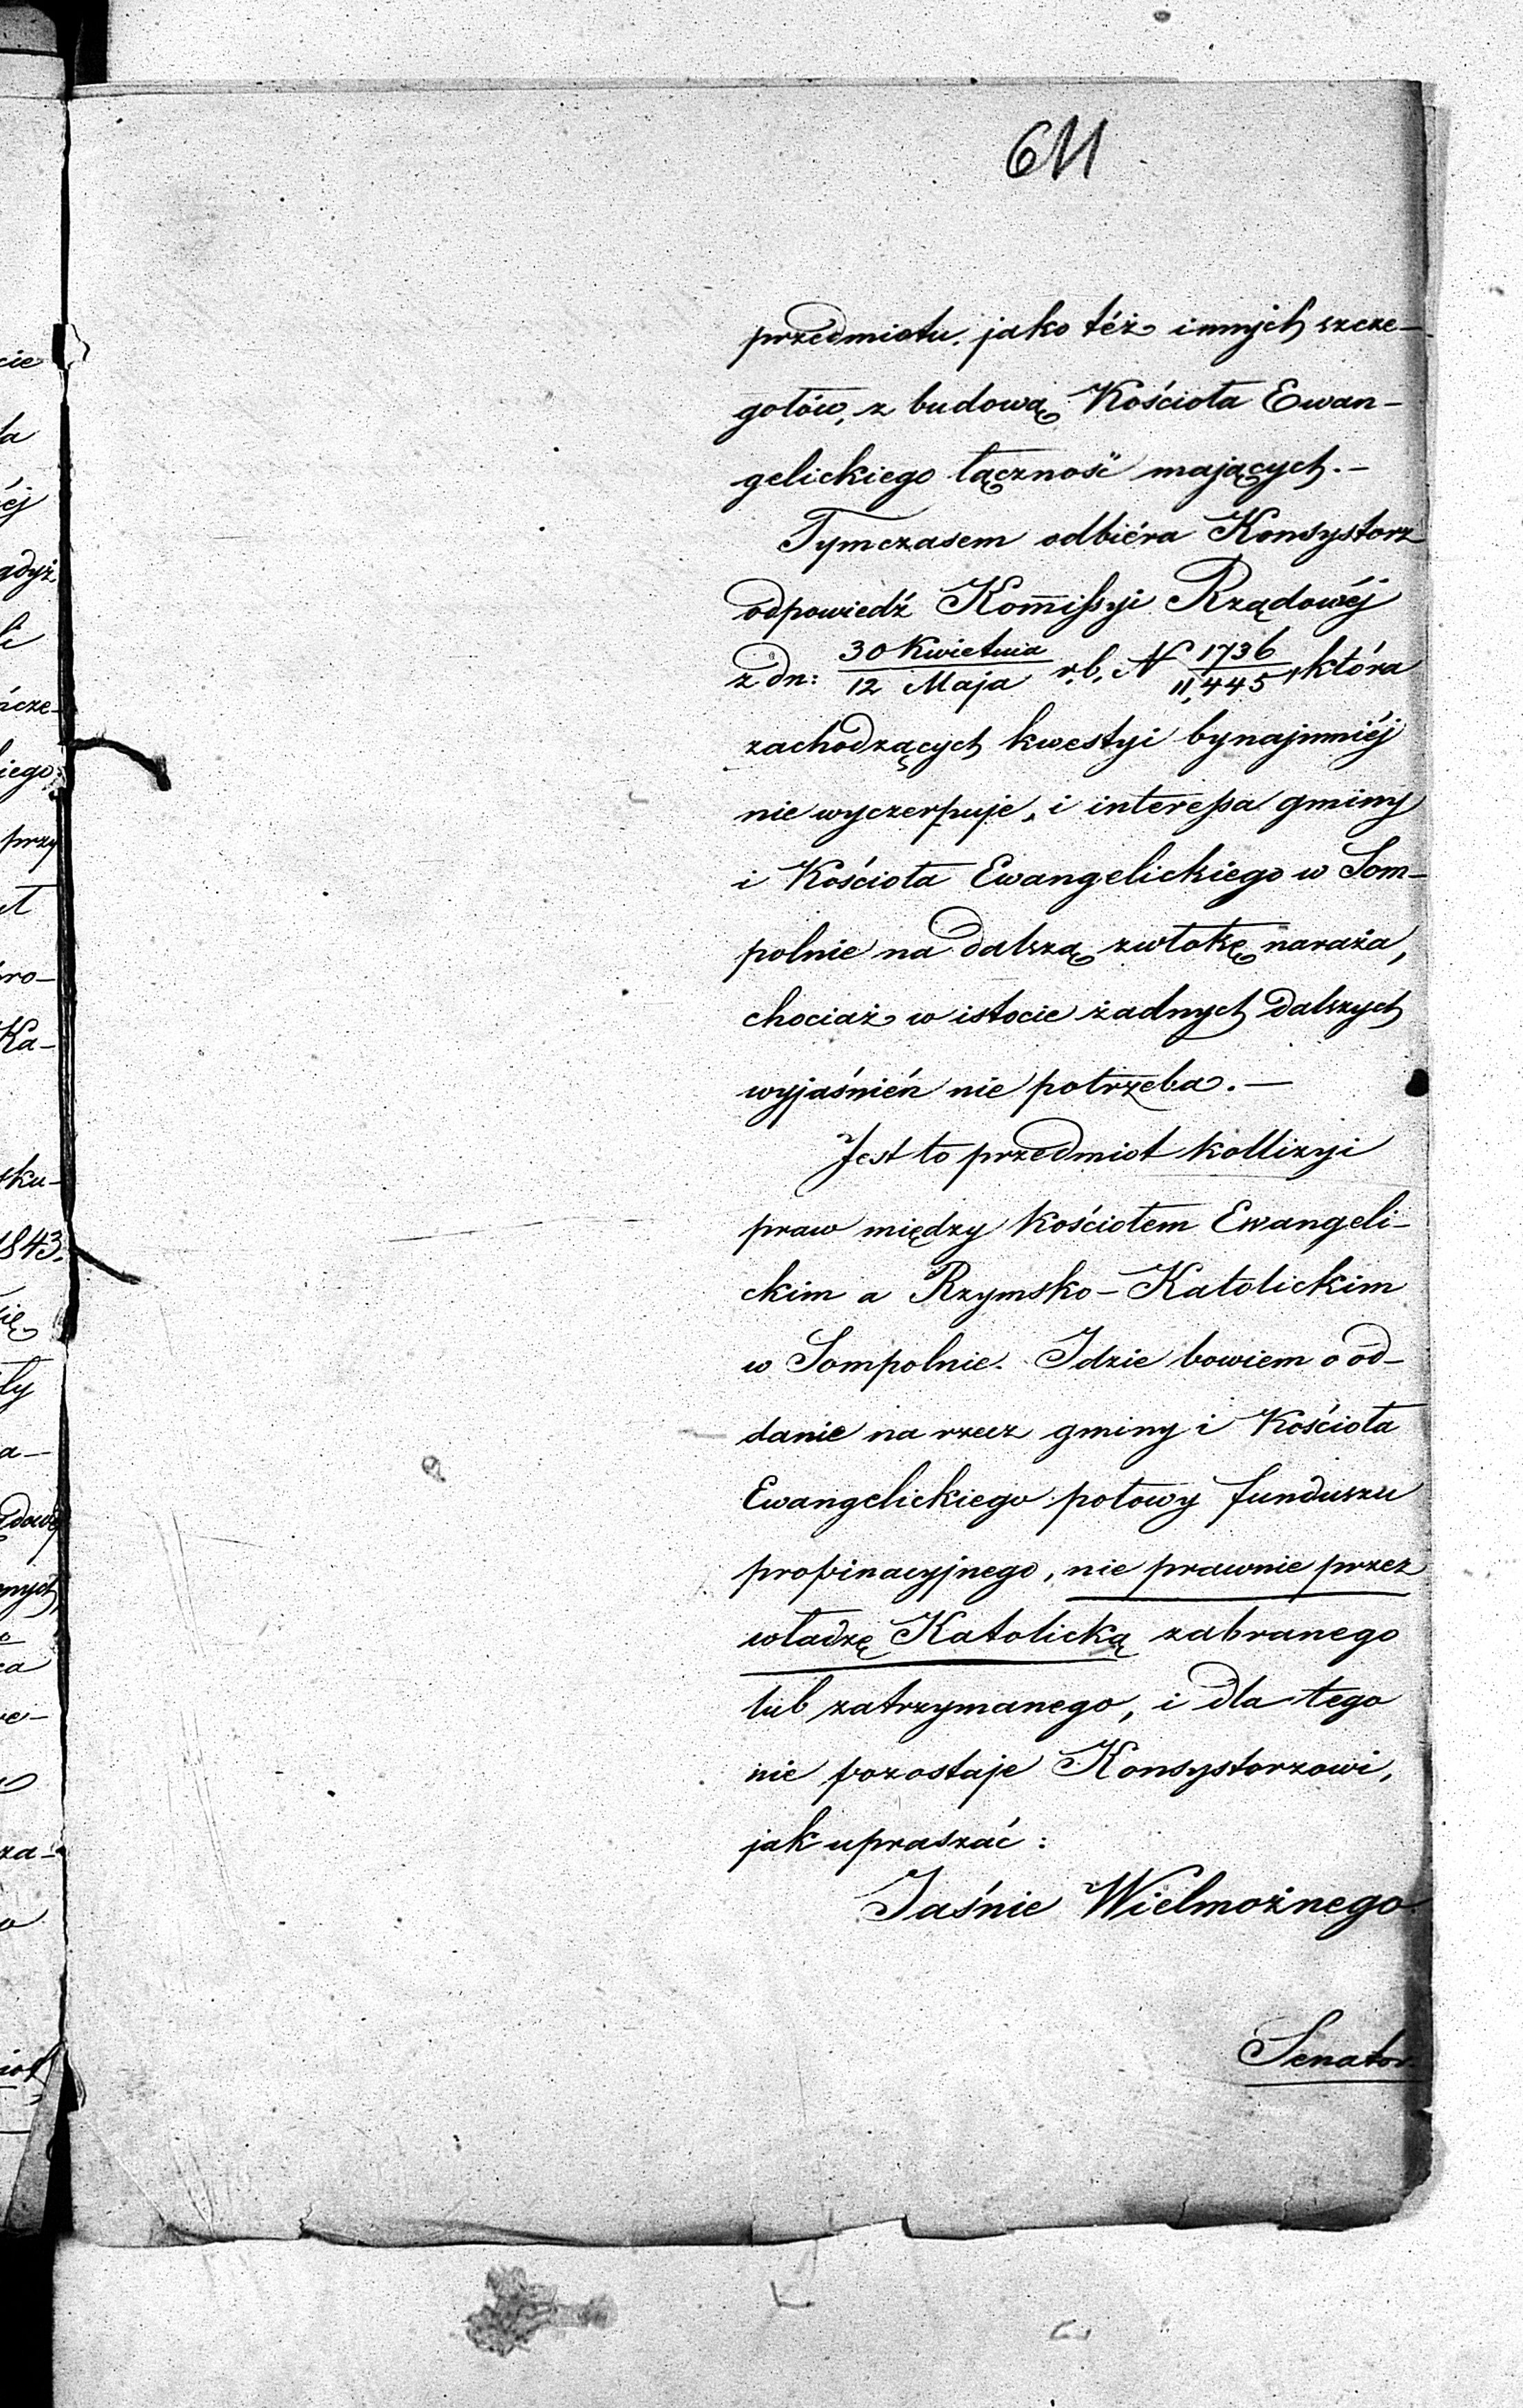 611
przedmiotu, jako też innych szcze-
gołów, z budową Kościoła Ewan-
gelickiego łączność mających.-
Tymczasem odbiéra Konsystorz
odpowiedź Kommissyi Rządowéj
z dn: 30 Kwietnia / 12 Maja r.b. N 1736 / 11,445, która
zachodzących kwestyi bynajmniéj
nie wyczerpuje, i interessa gminy
i Kościoła Ewangelickiego w Som-
polnie na dalszą zwłokę naraża,
chociaż w istocie żadnych dalszych
wyjaśnień nie potrzeba.-
Jest to przedmiot kollizyi
praw między Kościołem Ewangeli-
ckim a Rzymsko-Katolickim
w Sompolnie. Idzie bowiem o od-
danie na rzecz gminy i Kościoła
Ewangelickiego połowy funduszu
propinacyjnego, nie prawnie przez
władzę Katolicką zabranego
lub zatrzymanego, i dla tego
nie pozostaje Konsystorzowi,
jak upraszać:
Jaśnie Wielmożnego
Senator